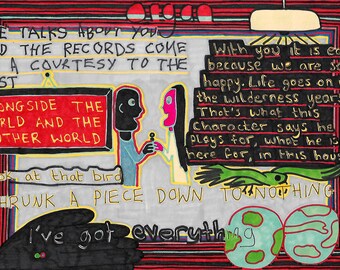 organ
E TALKS ABOUT YOU
D THE RECORDS COME
A COURTESY TO THE
ST
ONGSIDE THE
RLD AND THE
OTHER WORLD
With you it is ea
because we are so
happy. Life goes on i
the wilderness years
That's what this
character says he
plays for, what he is
here for, in this hous
ok at that bird
HRUNK A PIECE DOWN TO NOTHING
I've got everything